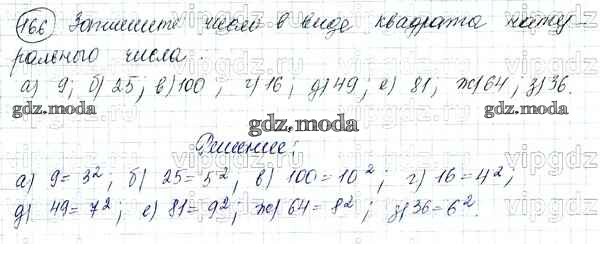 166 Запишите числа в виде квадрата нату-
рального числа:
а) 9; б) 25; в) 100; г) 16; д) 49; е) 81; ж) 64; з) 36.
gdz.moda gdz.moda gdz.moda
Решение:
а) 9 = 3²; б) 25 = 5²; в) 100 = 10²; г) 16 = 4²;
д) 49 = 7²; е) 81 = 9²; ж) 64 = 8²; з) 36 = 6².
vipgdz